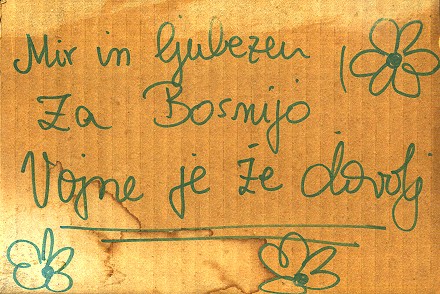 Mir in ljubezen
Za Bosnijo
Vojne je že dovolj